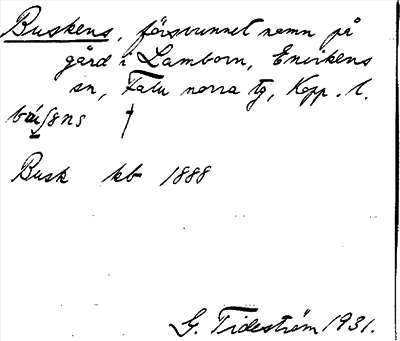 Buskens, försvunnet namn på
gård i Lamborn, Envikens
sn, Falu norra tg, Kopp. l.
†
Busk kb 1888
G. Tideström 1931.